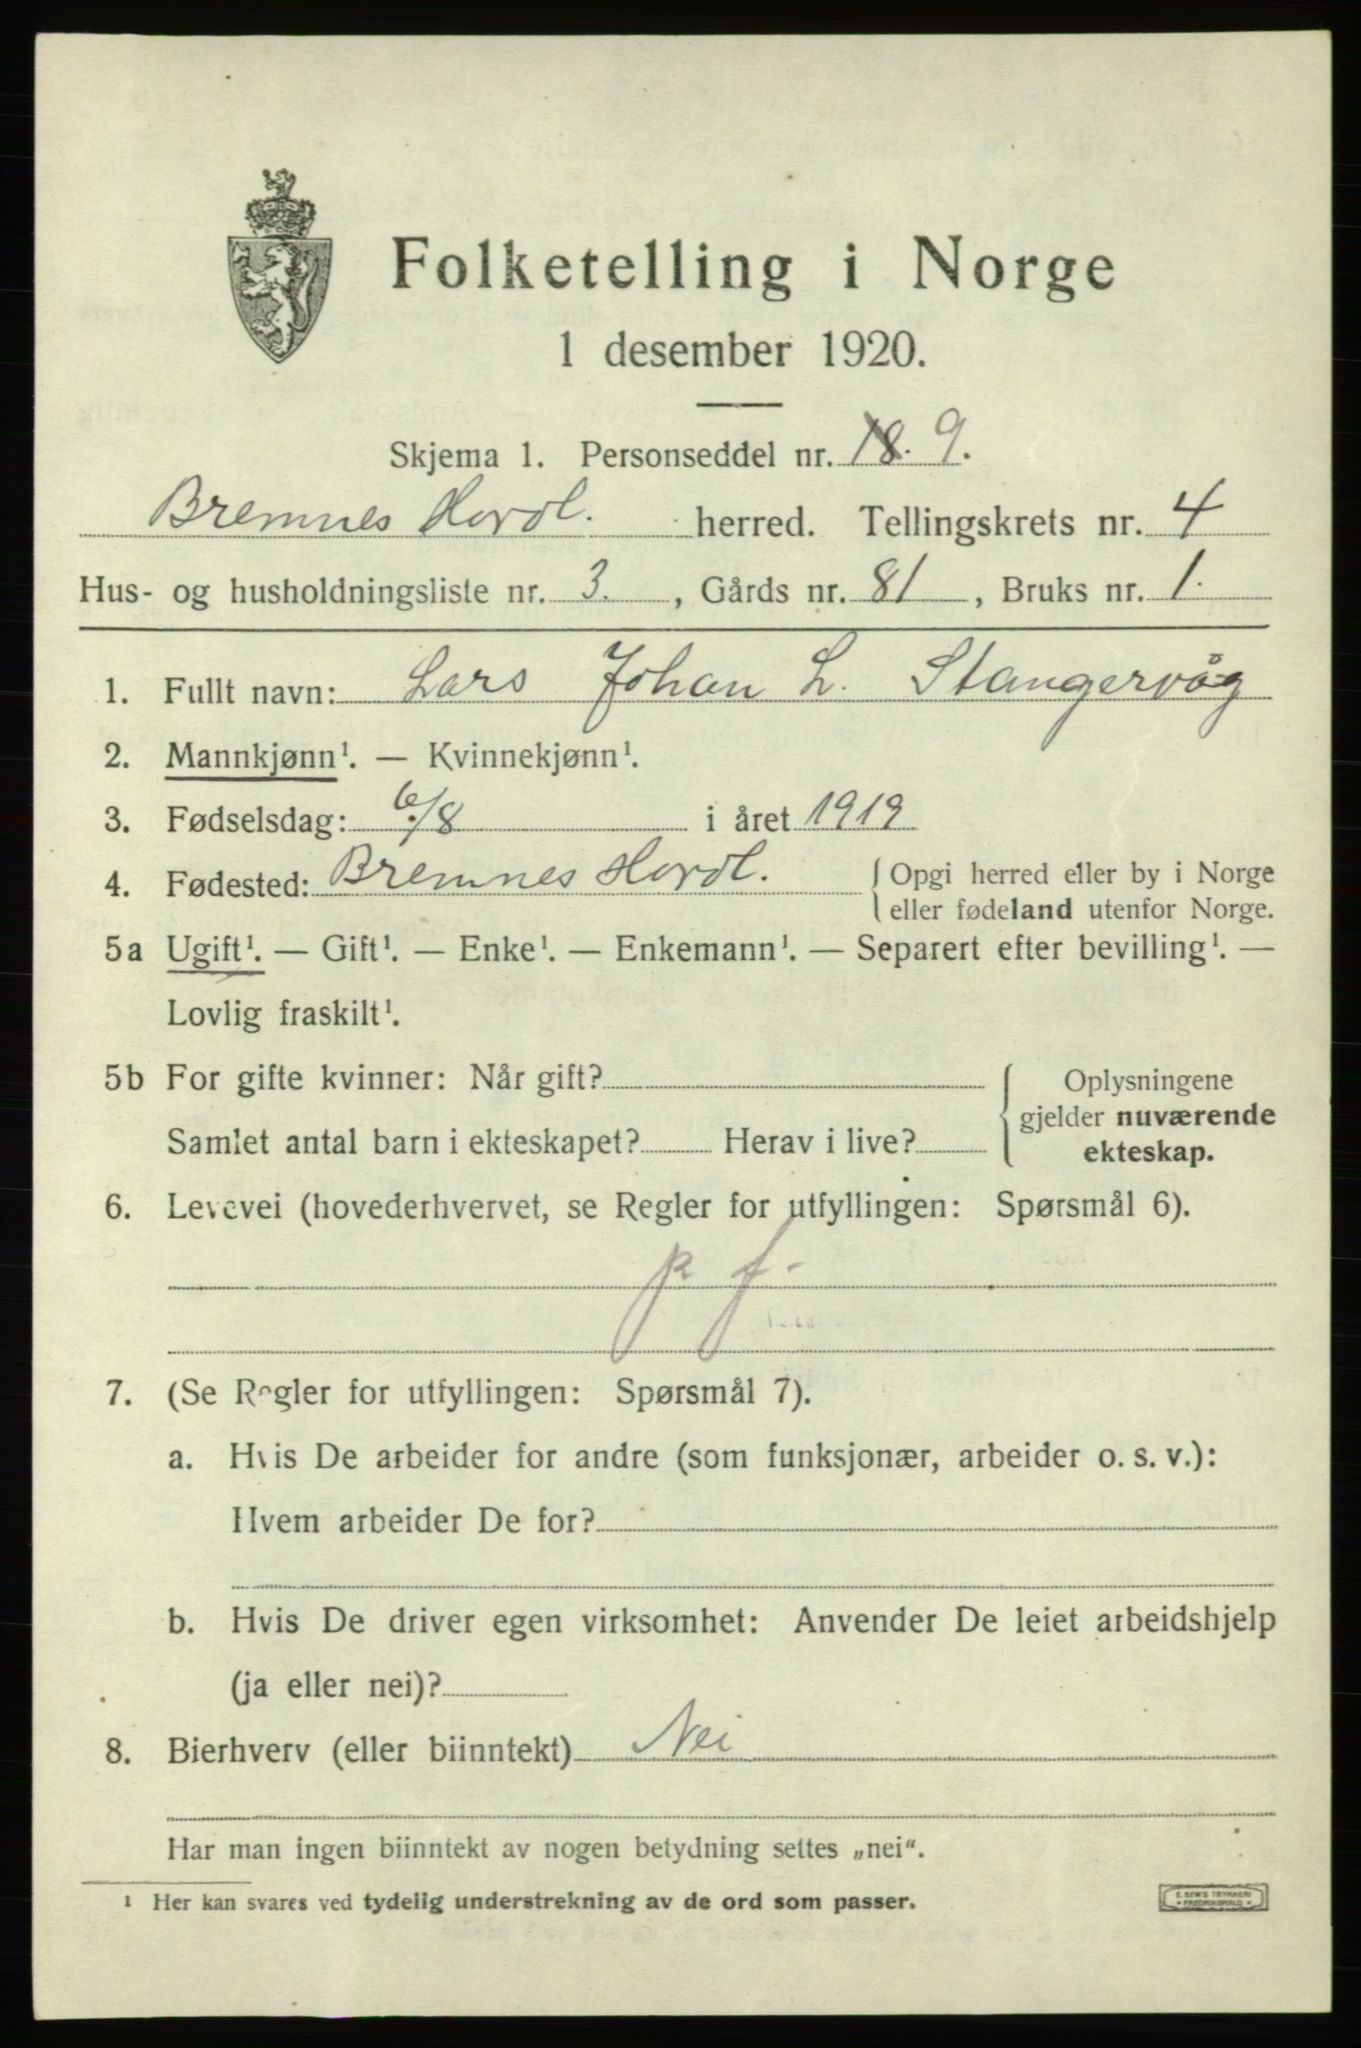 Folketelling i Norge
1 desember 1920.
Skjema 1. Personseddel nr. 18. 9.
Bremnes Hordl. herred. Tellingskrets nr. 4
Hus- og husholdningsliste nr. 3. , Gårds nr. 81 , Bruks nr. 1.
1. Fullt navn: Lars Johan L. Stangervåg
2. Mannkjønn¹. — Kvinnekjønn¹.
3. Fødselsdag: 6/8 i året 1919
4. Fødested: Bremnes Hordl. { Opgi herred eller by i Norge
eller fødeland utenfor Norge.
5a Ugift¹. — Gift¹. — Enke¹. — Enkemann¹. — Separert efter bevilling¹. —
Lovlig fraskilt¹.
5b For gifte kvinner: Når gift?
Samlet antal barn i ekteskapet? Herav i live?
Oplysningene
gjelder nuværende
ekteskap.
6. Levevei (hovederhvervet, se Regler for utfyllingen: Spørsmål 6).
p f -
7. (Se Regler for utfyllingen: Spørsmål 7).
a. Hvis De arbeider for andre (som funksjonær, arbeider o. s. v.):
Hvem arbeider De for?
b. Hvis De driver egen virksomhet: Anvender De leiet arbeidshjelp
(ja eller nei)?
8. Bierhverv (eller biinntekt) Nei
Har man ingen biinntekt av nogen betydning settes „nei“.
¹ Her kan svares ved tydelig understrekning av de ord som passer.
E. SEM'S TRYKKERI
FREDRIKSHALD